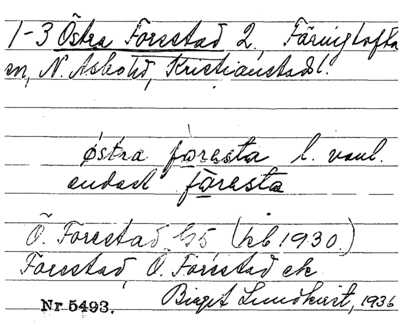 1-3 Östra Forestad 2, Färingtofta
sn, N. Åsbohd, Kristianstads l.
östra foresta l. vanl.
endast foresta
Ö. Forestad G5 (hb 1930.)
Forestad, Ö. Forestad ek
Birgit Lundkvist, 1936
Nr 5493.